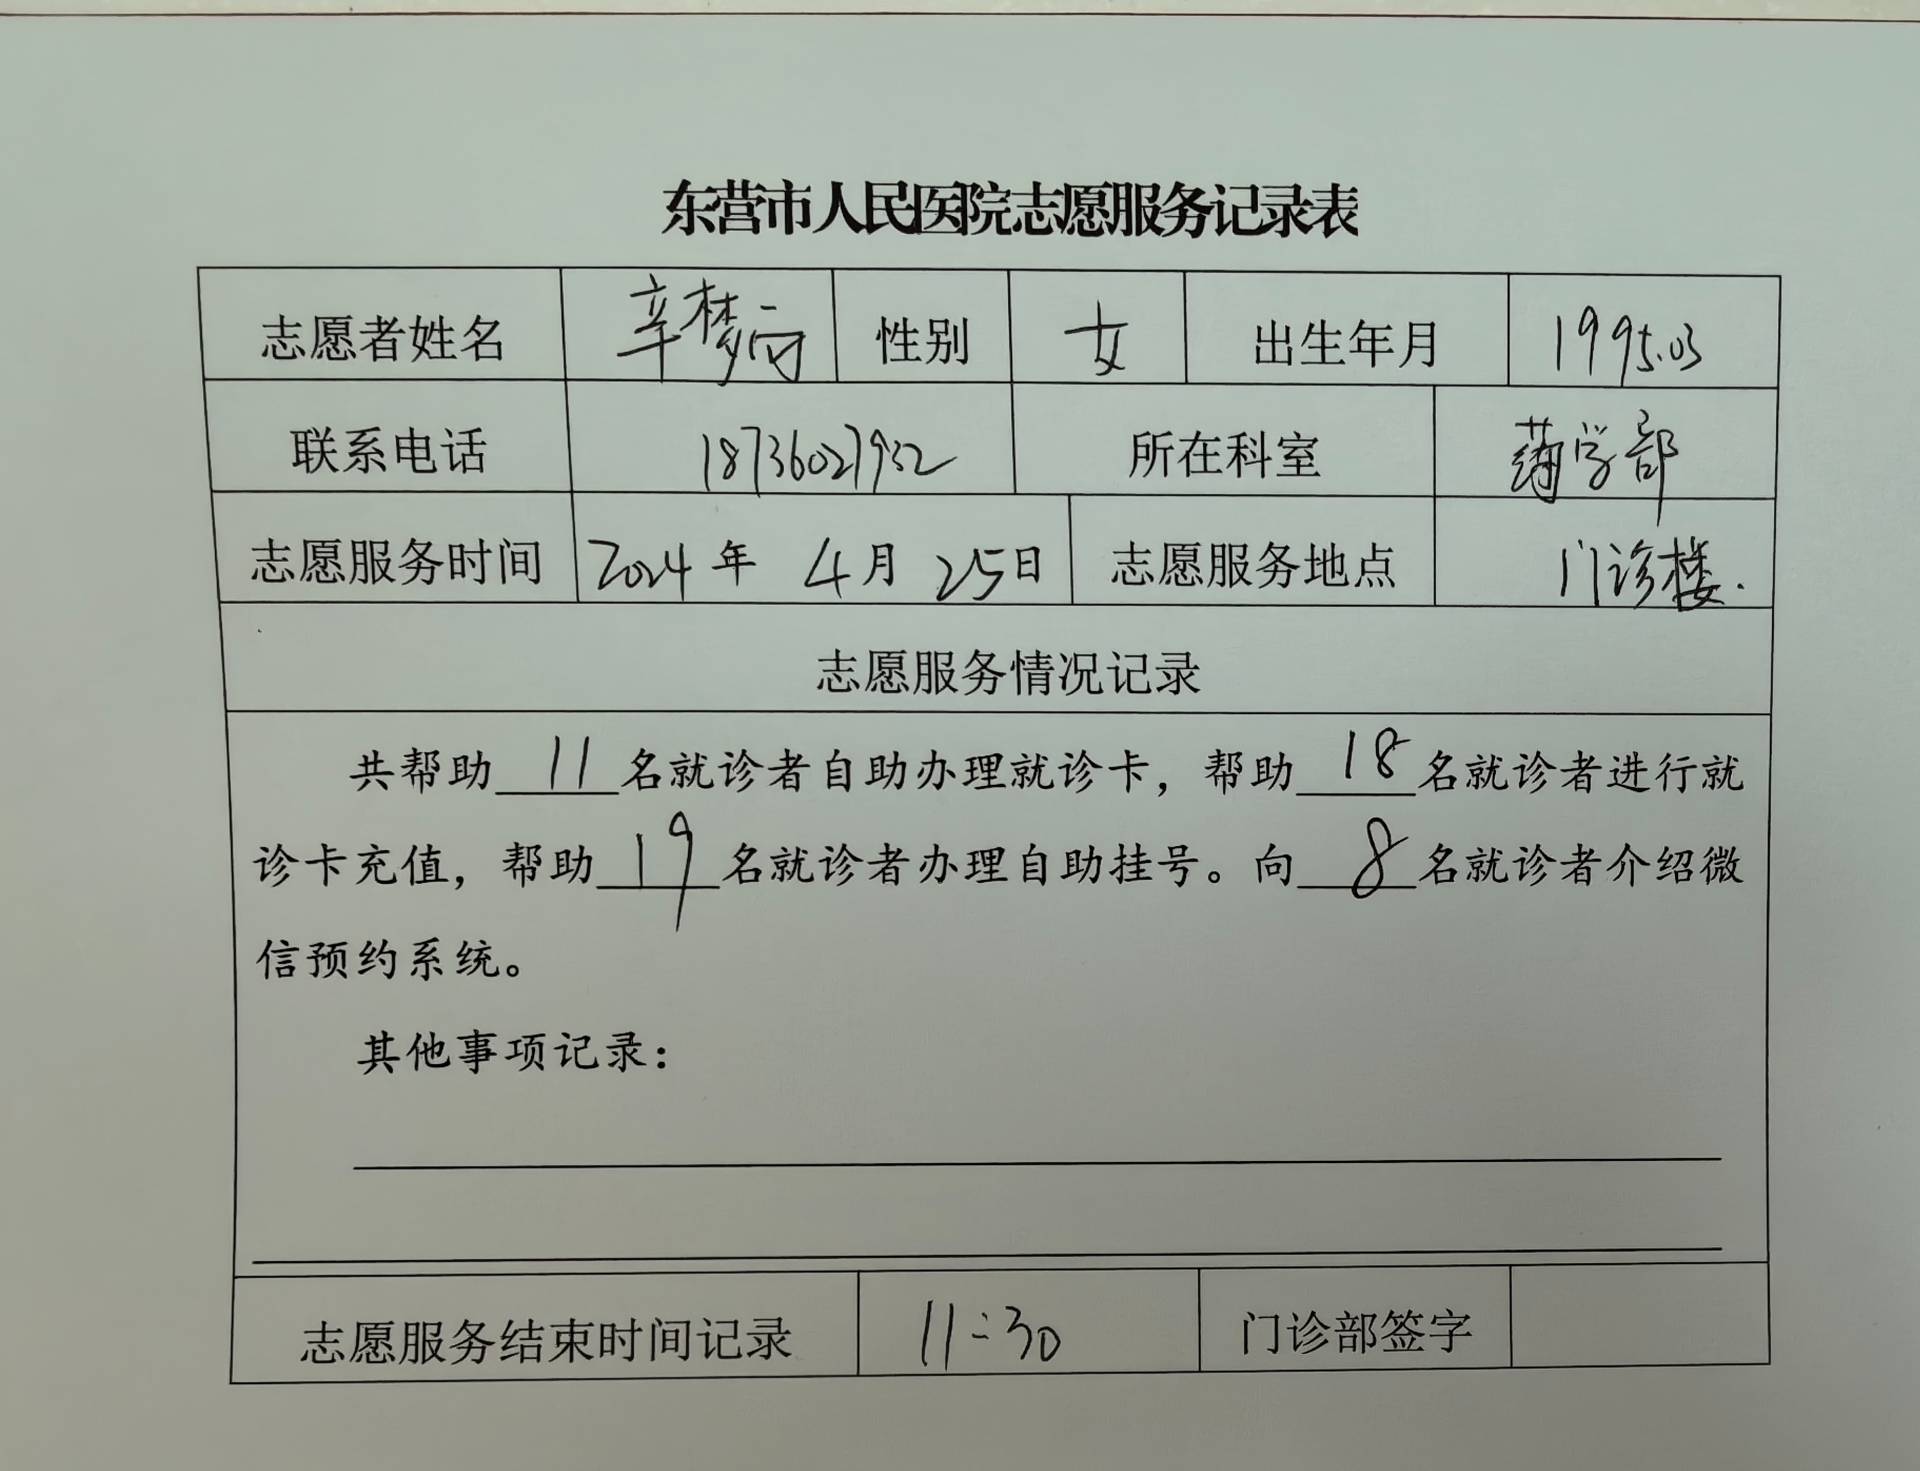 东营市人民医院志愿服务记录表
志愿者姓名 辛梦 性别 女 出生年月 1995.03
联系电话 18736027932 所在科室 药学部
志愿服务时间 2024年 4月 25日 志愿服务地点 门诊楼.
志愿服务情况记录
共帮助 11 名就诊者自助办理就诊卡，帮助 18 名就诊者进行就
诊卡充值，帮助 19 名就诊者办理自助挂号。向 8 名就诊者介绍微
信预约系统。
其他事项记录：
志愿服务结束时间记录 11:30 门诊部签字